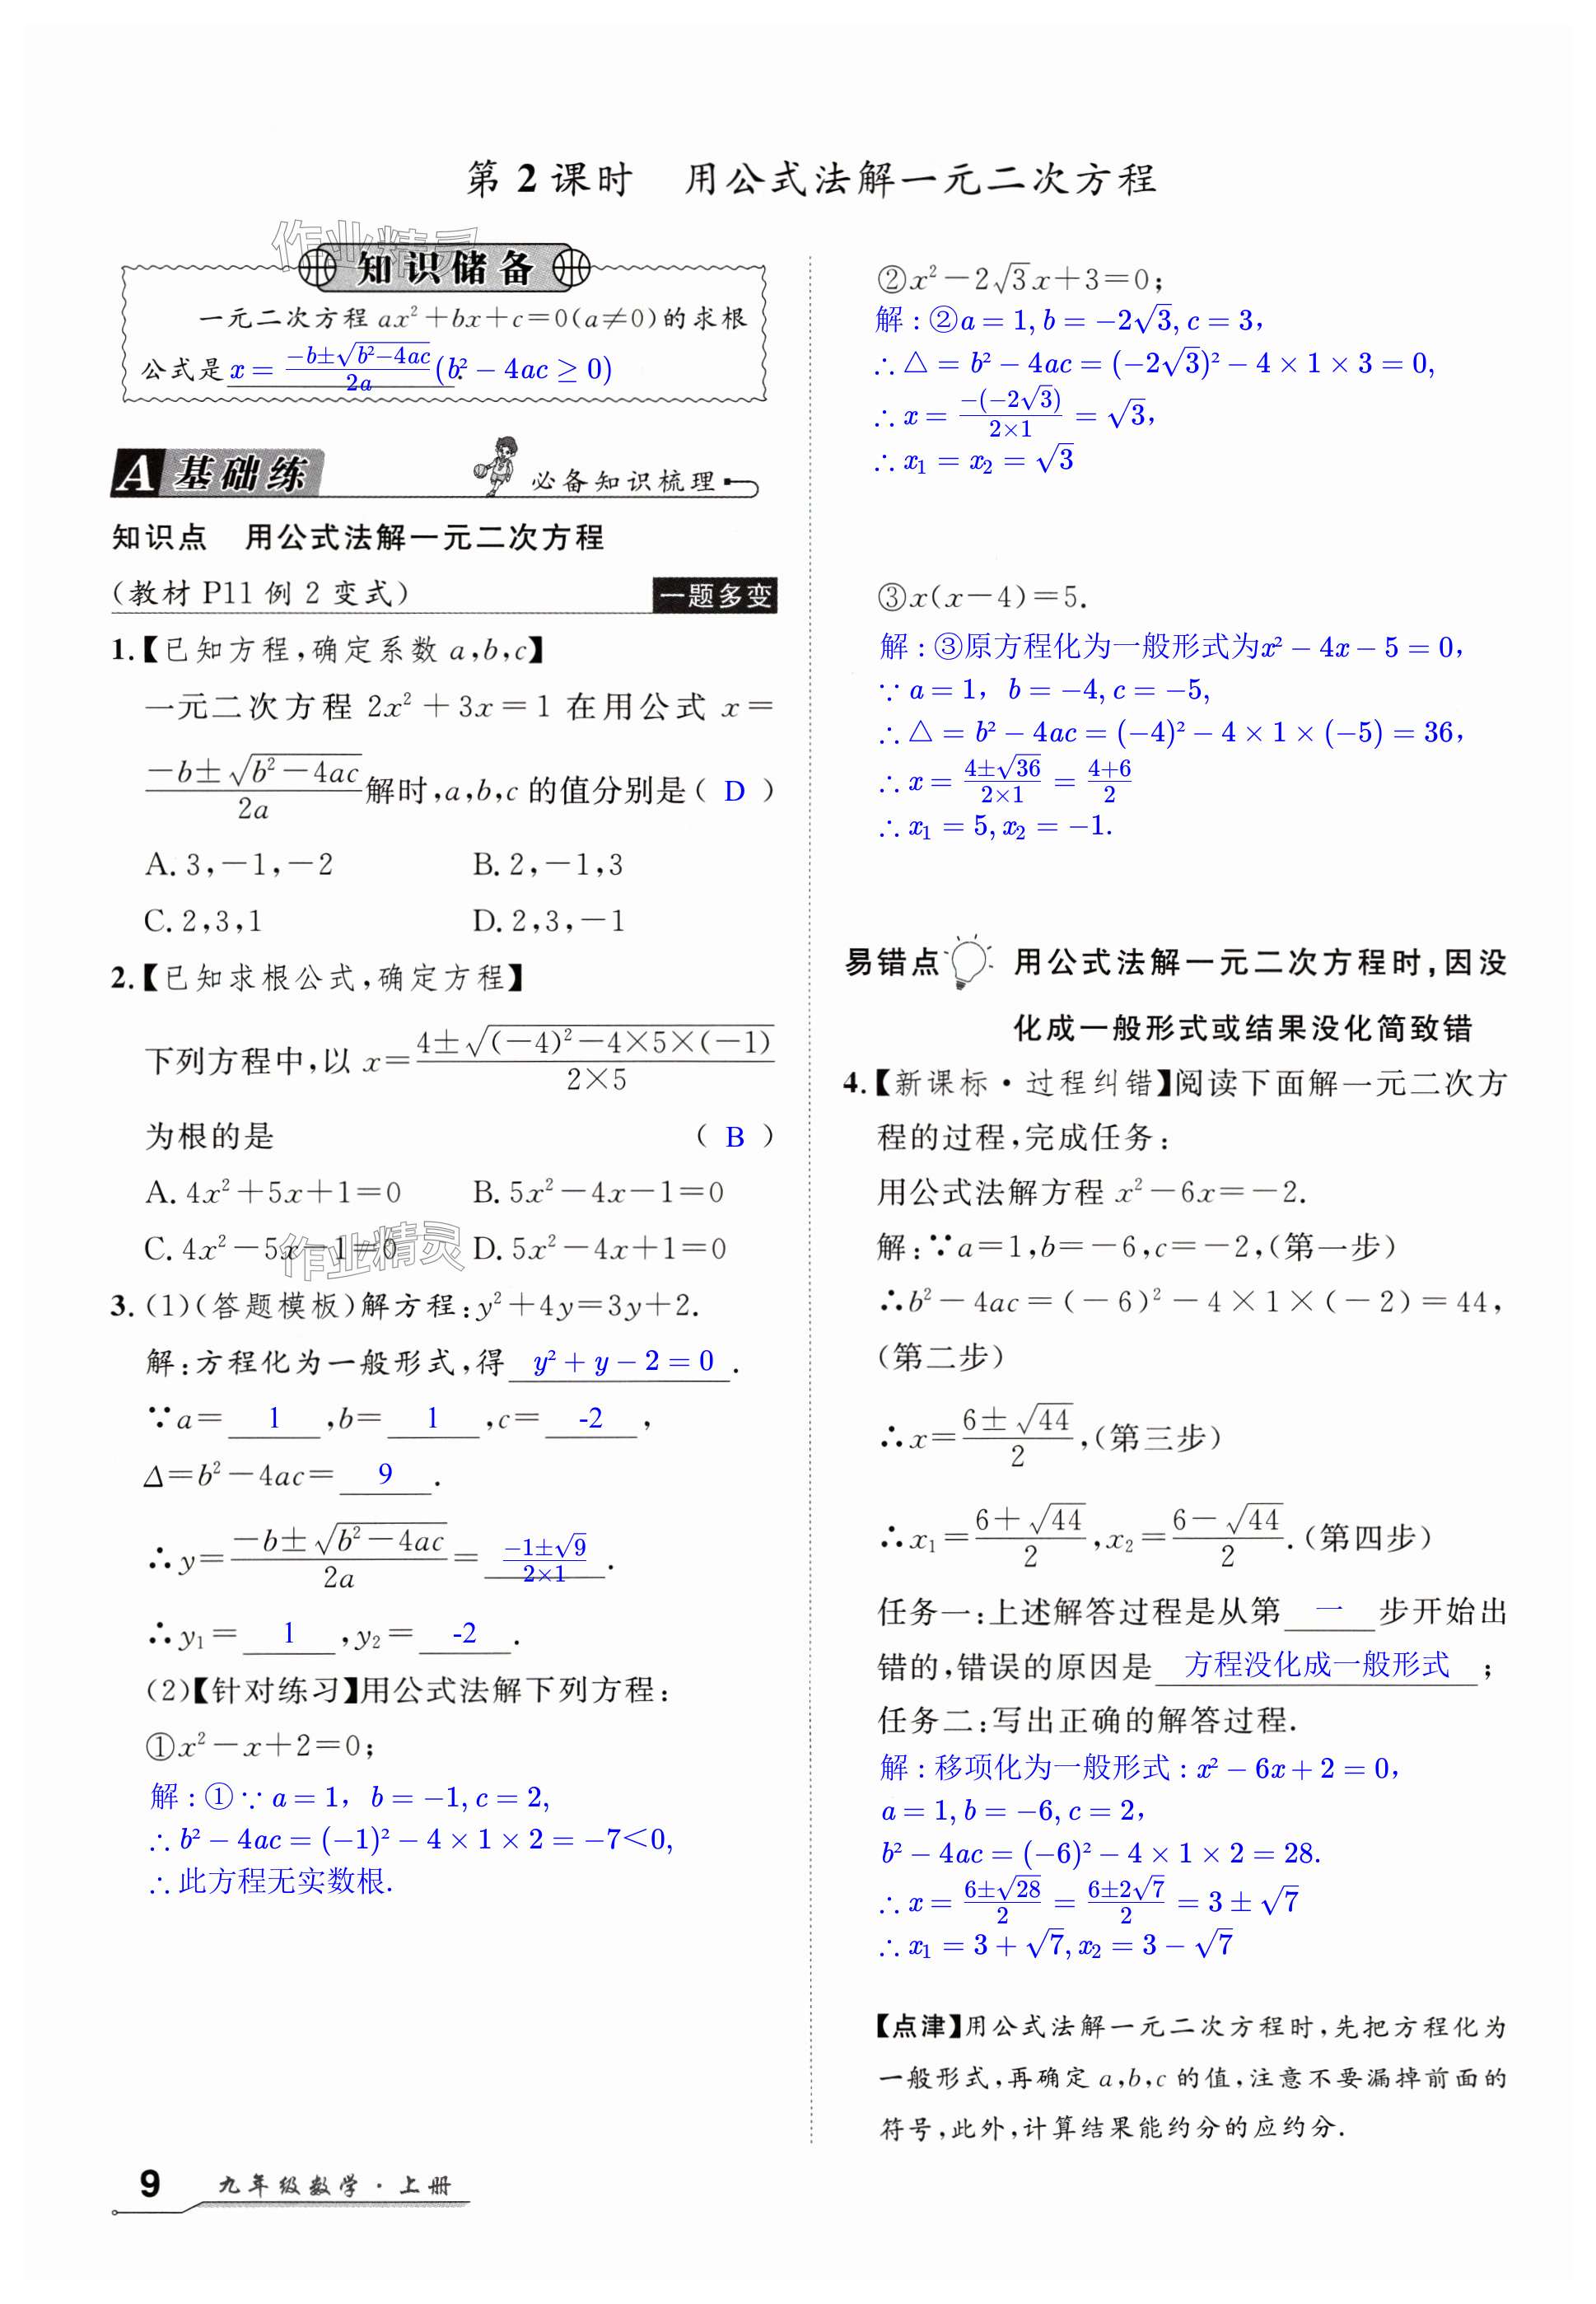 第 2 课时　用公式法解一元二次方程
作业精灵
知识储备
一元二次方程 ax²+bx+c=0(a≠0)的求根
公式是 x = (-b±√(b²-4ac))/(2a) (b² - 4ac ≥ 0).
A 基础练　必备知识梳理
知识点　用公式法解一元二次方程
(教材 P11 例 2 变式)　一题多变
1.【已知方程,确定系数 a,b,c】
一元二次方程 2x²+3x=1 在用公式 x=
(-b±√(b²-4ac))/(2a) 解时,a,b,c 的值分别是( D )
A. 3,-1,-2　B. 2,-1,3
C. 2,3,1　D. 2,3,-1
2.【已知求根公式,确定方程】
下列方程中,以 x=(4±√((-4)²-4×5×(-1)))/(2×5)
为根的是　( B )
A. 4x²+5x+1=0　B. 5x²-4x-1=0
C. 4x²-5x-1=0　D. 5x²-4x+1=0
作业精灵
3. (1)(答题模板)解方程:y²+4y=3y+2.
解:方程化为一般形式,得 y² + y - 2 = 0 .
∵a= 1 ,b= 1 ,c= -2 ,
Δ=b²-4ac= 9 .
∴y=(-b±√(b²-4ac))/(2a)= (-1±√9)/(2×1) .
∴y₁= 1 ,y₂= -2 .
(2)【针对练习】用公式法解下列方程:
①x²-x+2=0;
解：①∵ a = 1，b = -1, c = 2,
∴ b² - 4ac = (-1)² - 4 × 1 × 2 = -7＜0,
∴ 此方程无实数根.
②x²-2√3x+3=0;
解：②a = 1, b = -2√3, c = 3，
∴ △ = b² - 4ac = (-2√3)² - 4 × 1 × 3 = 0,
∴ x = (-(-2√3))/(2×1) = √3，
∴ x₁ = x₂ = √3
③x(x-4)=5.
解：③原方程化为一般形式为x² - 4x - 5 = 0，
∵ a = 1，b = -4, c = -5,
∴ △ = b² - 4ac = (-4)² - 4 × 1 × (-5) = 36，
∴ x = (4±√36)/(2×1) = (4+6)/2
∴ x₁ = 5, x₂ = -1.
易错点　用公式法解一元二次方程时,因没
化成一般形式或结果没化简致错
4.【新课标·过程纠错】阅读下面解一元二次方
程的过程,完成任务:
用公式法解方程 x²-6x=-2.
解:∵a=1,b=-6,c=-2,(第一步)
∴b²-4ac=(-6)²-4×1×(-2)=44,
(第二步)
∴x=(6±√44)/2,(第三步)
∴x₁=(6+√44)/2,x₂=(6-√44)/2.(第四步)
任务一:上述解答过程是从第 一 步开始出
错的,错误的原因是 方程没化成一般形式 ;
任务二:写出正确的解答过程.
解：移项化为一般形式：x² - 6x + 2 = 0，
a = 1, b = -6, c = 2，
b² - 4ac = (-6)² - 4 × 1 × 2 = 28.
∴ x = (6±√28)/2 = (6±2√7)/2 = 3 ± √7
∴ x₁ = 3 + √7, x₂ = 3 - √7
【点津】用公式法解一元二次方程时,先把方程化为
一般形式,再确定 a,b,c 的值,注意不要漏掉前面的
符号,此外,计算结果能约分的应约分.
9　九年级数学·上册